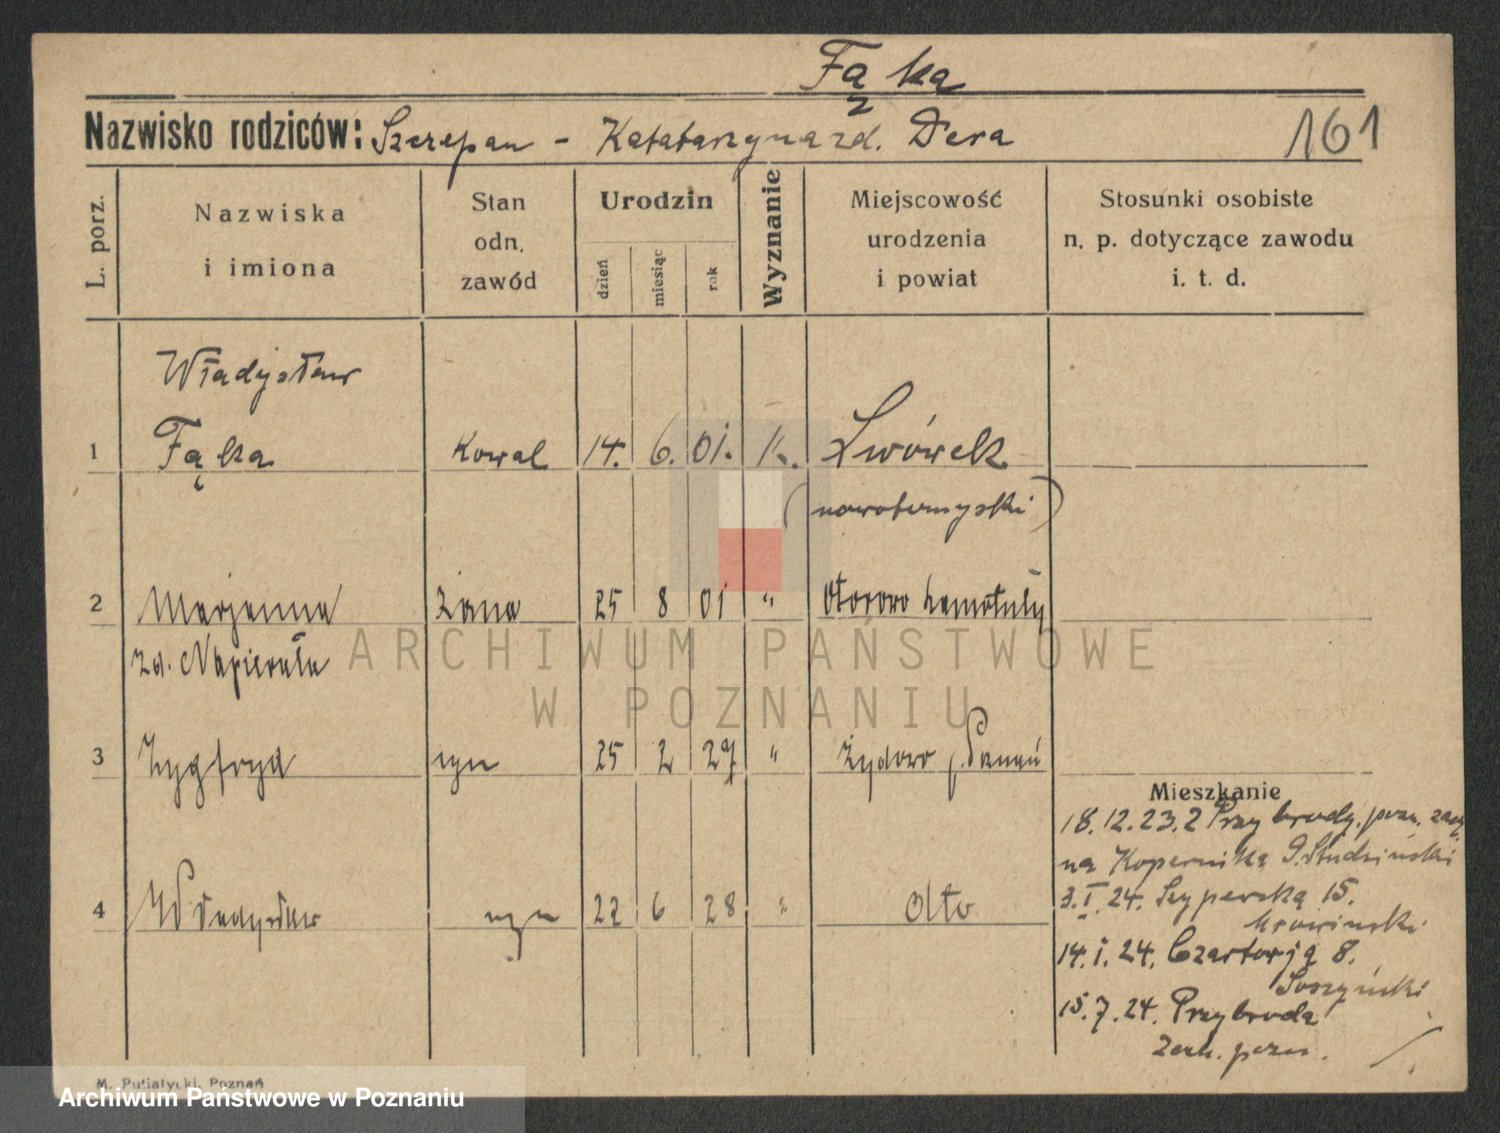 Fąka
Nazwisko rodziców: Szczepan - Katatarzyna zd. Dera
161
L. porz.
Nazwiska
i imiona
Stan
odn.
zawód
Urodzin
dzień
miesiąc
rok
Wyznanie
Miejscowość
urodzenia
i powiat
Stosunki osobiste
n. p. dotyczące zawodu
i. t. d.
Władysław
1 Fąka Kowal 14. 6. 01. k. Lwówek
(nowotomyski)
2 Marjanna żona 25 8 01 " Otorowo Szamotuły
zd. Napierała
3 Zygfryd syn 25 2 27 " Żydowo p. Poznań
Mieszkanie
18.12.23. z Przybrody. pozn. zach.
na Kopernika 9. Studziński
3.I.24. Szyperską 15.
Mrowiński
4 Władysław syn 22 6 28 " dito
14.I.24. Czartorją 8.
Soszyński
15.7.24. Przybroda
zach. pozn.
M. Putiatycki, Poznań
ARCHIWUM PAŃSTWOWE
W POZNANIU
Archiwum Państwowe w Poznaniu